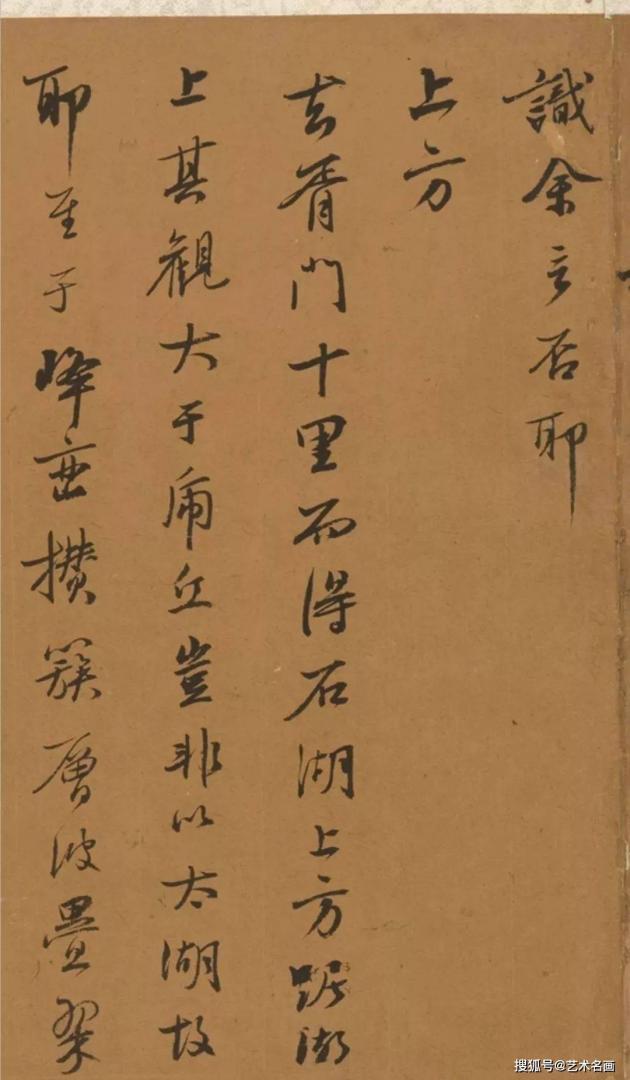 識余言否耶
上方
去胥門十里而得石湖上方踞湖
上其觀大于虎丘豈非以太湖故
耶至于峰巒攅簇層波疊翠
搜狐号@艺术名画